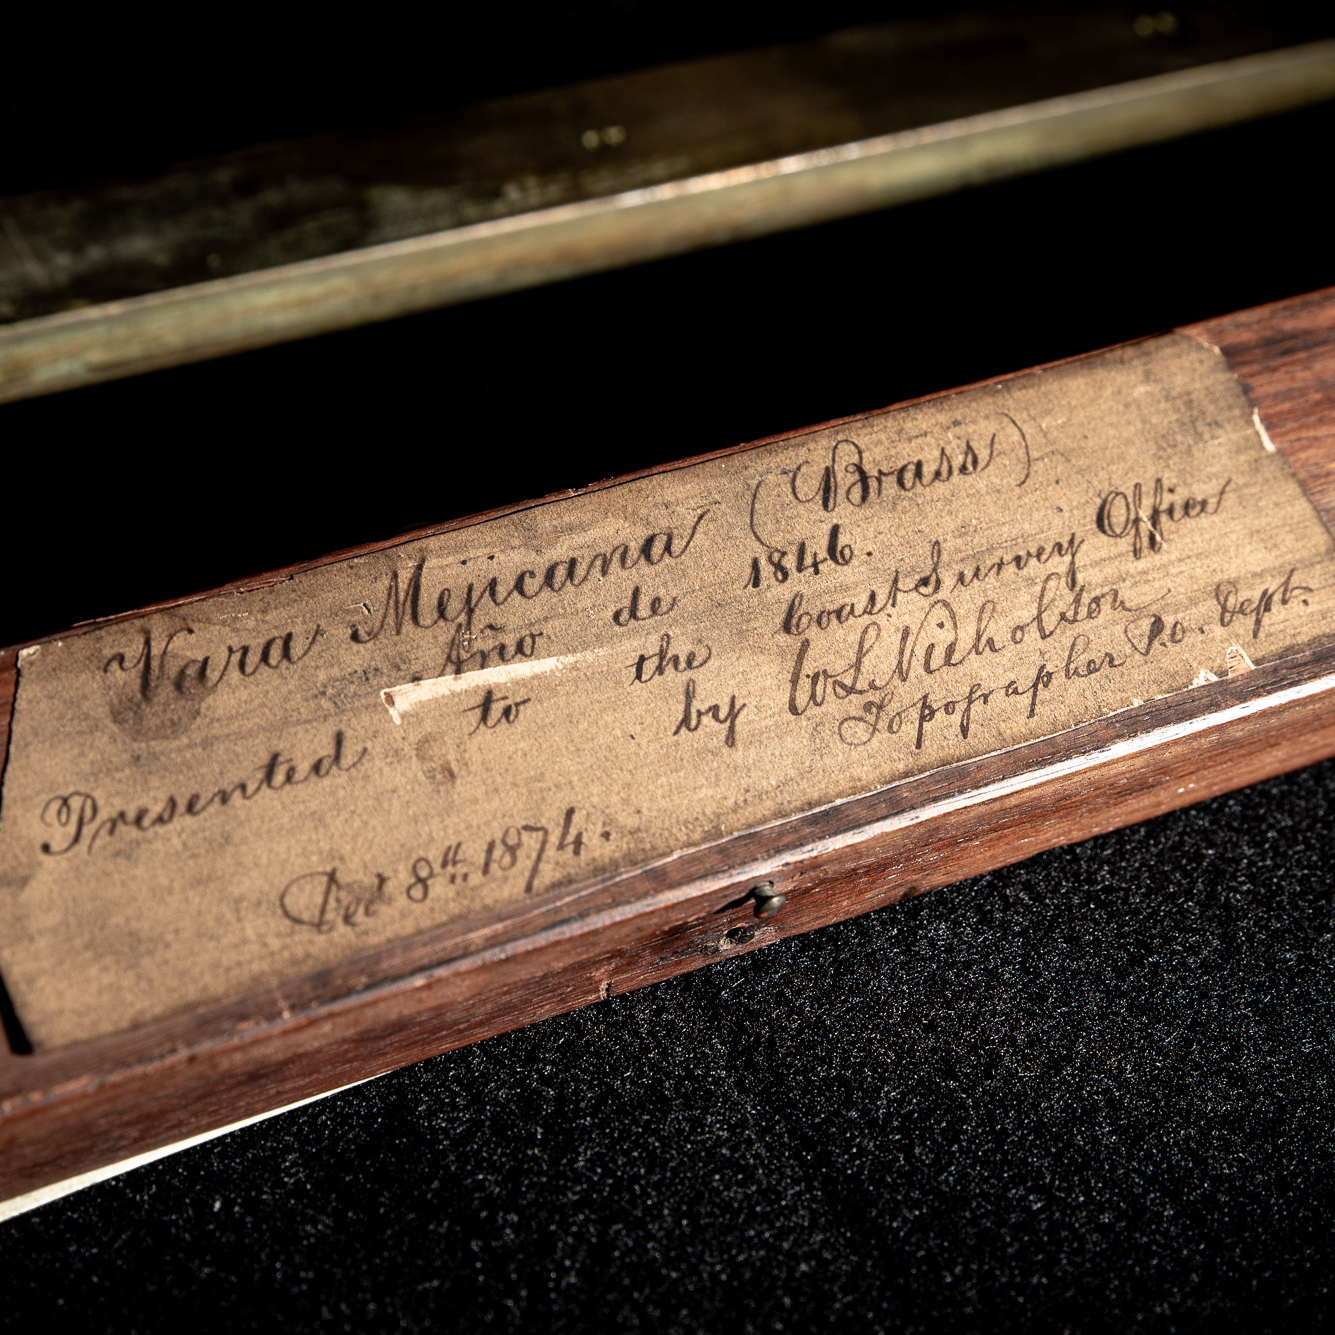 Vara Mejicana (Brass)
Año de 1846.
Presented to the Coast Survey Office
by W L Nicholson
Topographer P.O. Dept.
Dec 8th 1874.